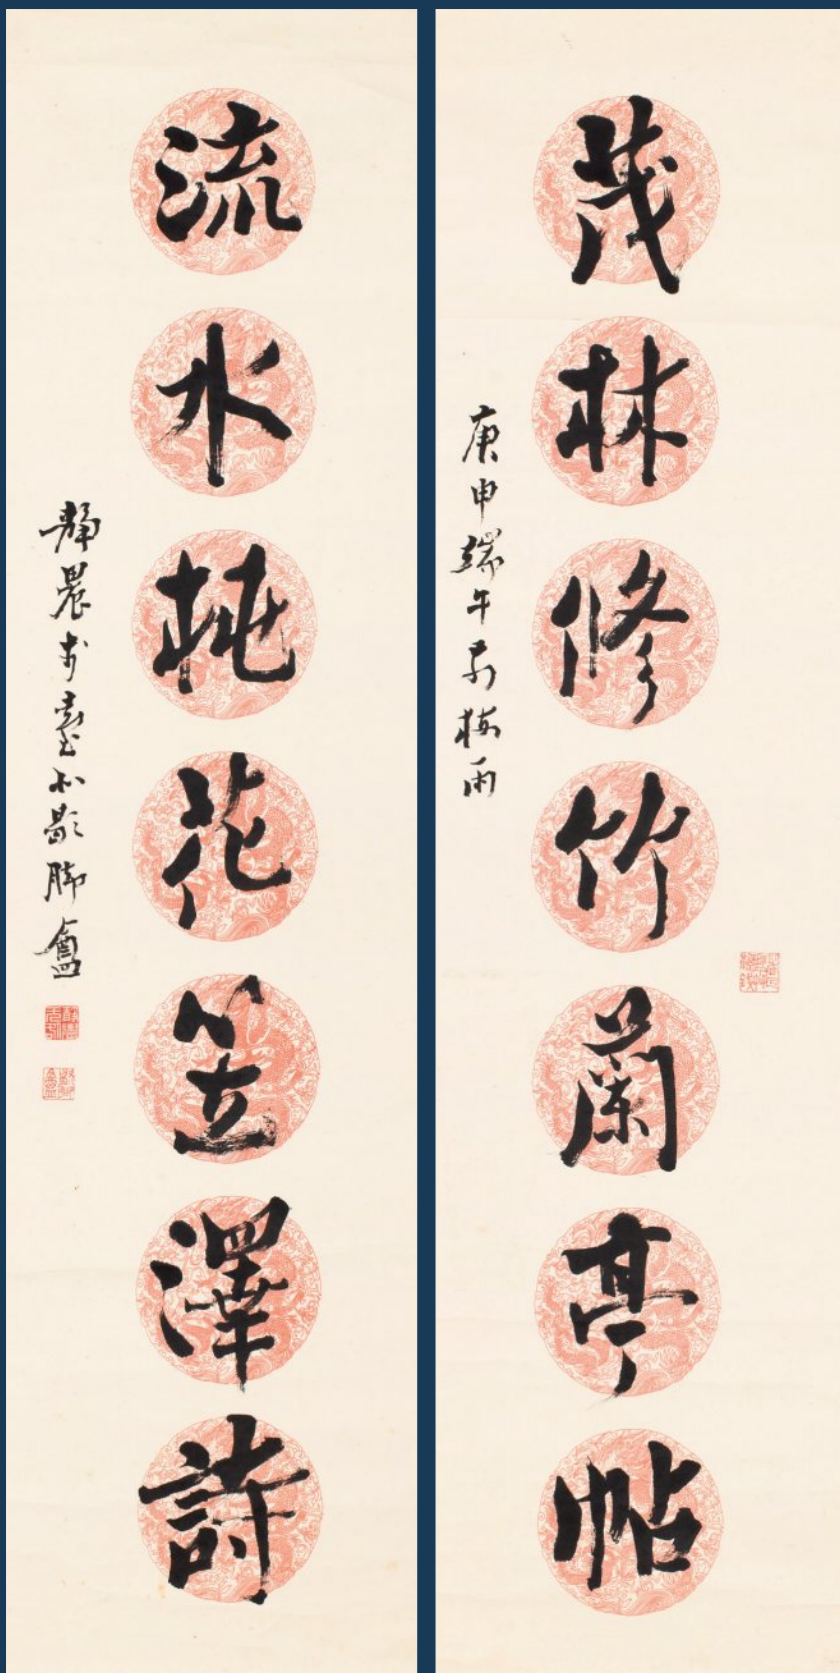 茂林修竹蘭亭帖
庚申端午前梅雨
流水桃花笠澤詩
靜農於臺北歇脚盦